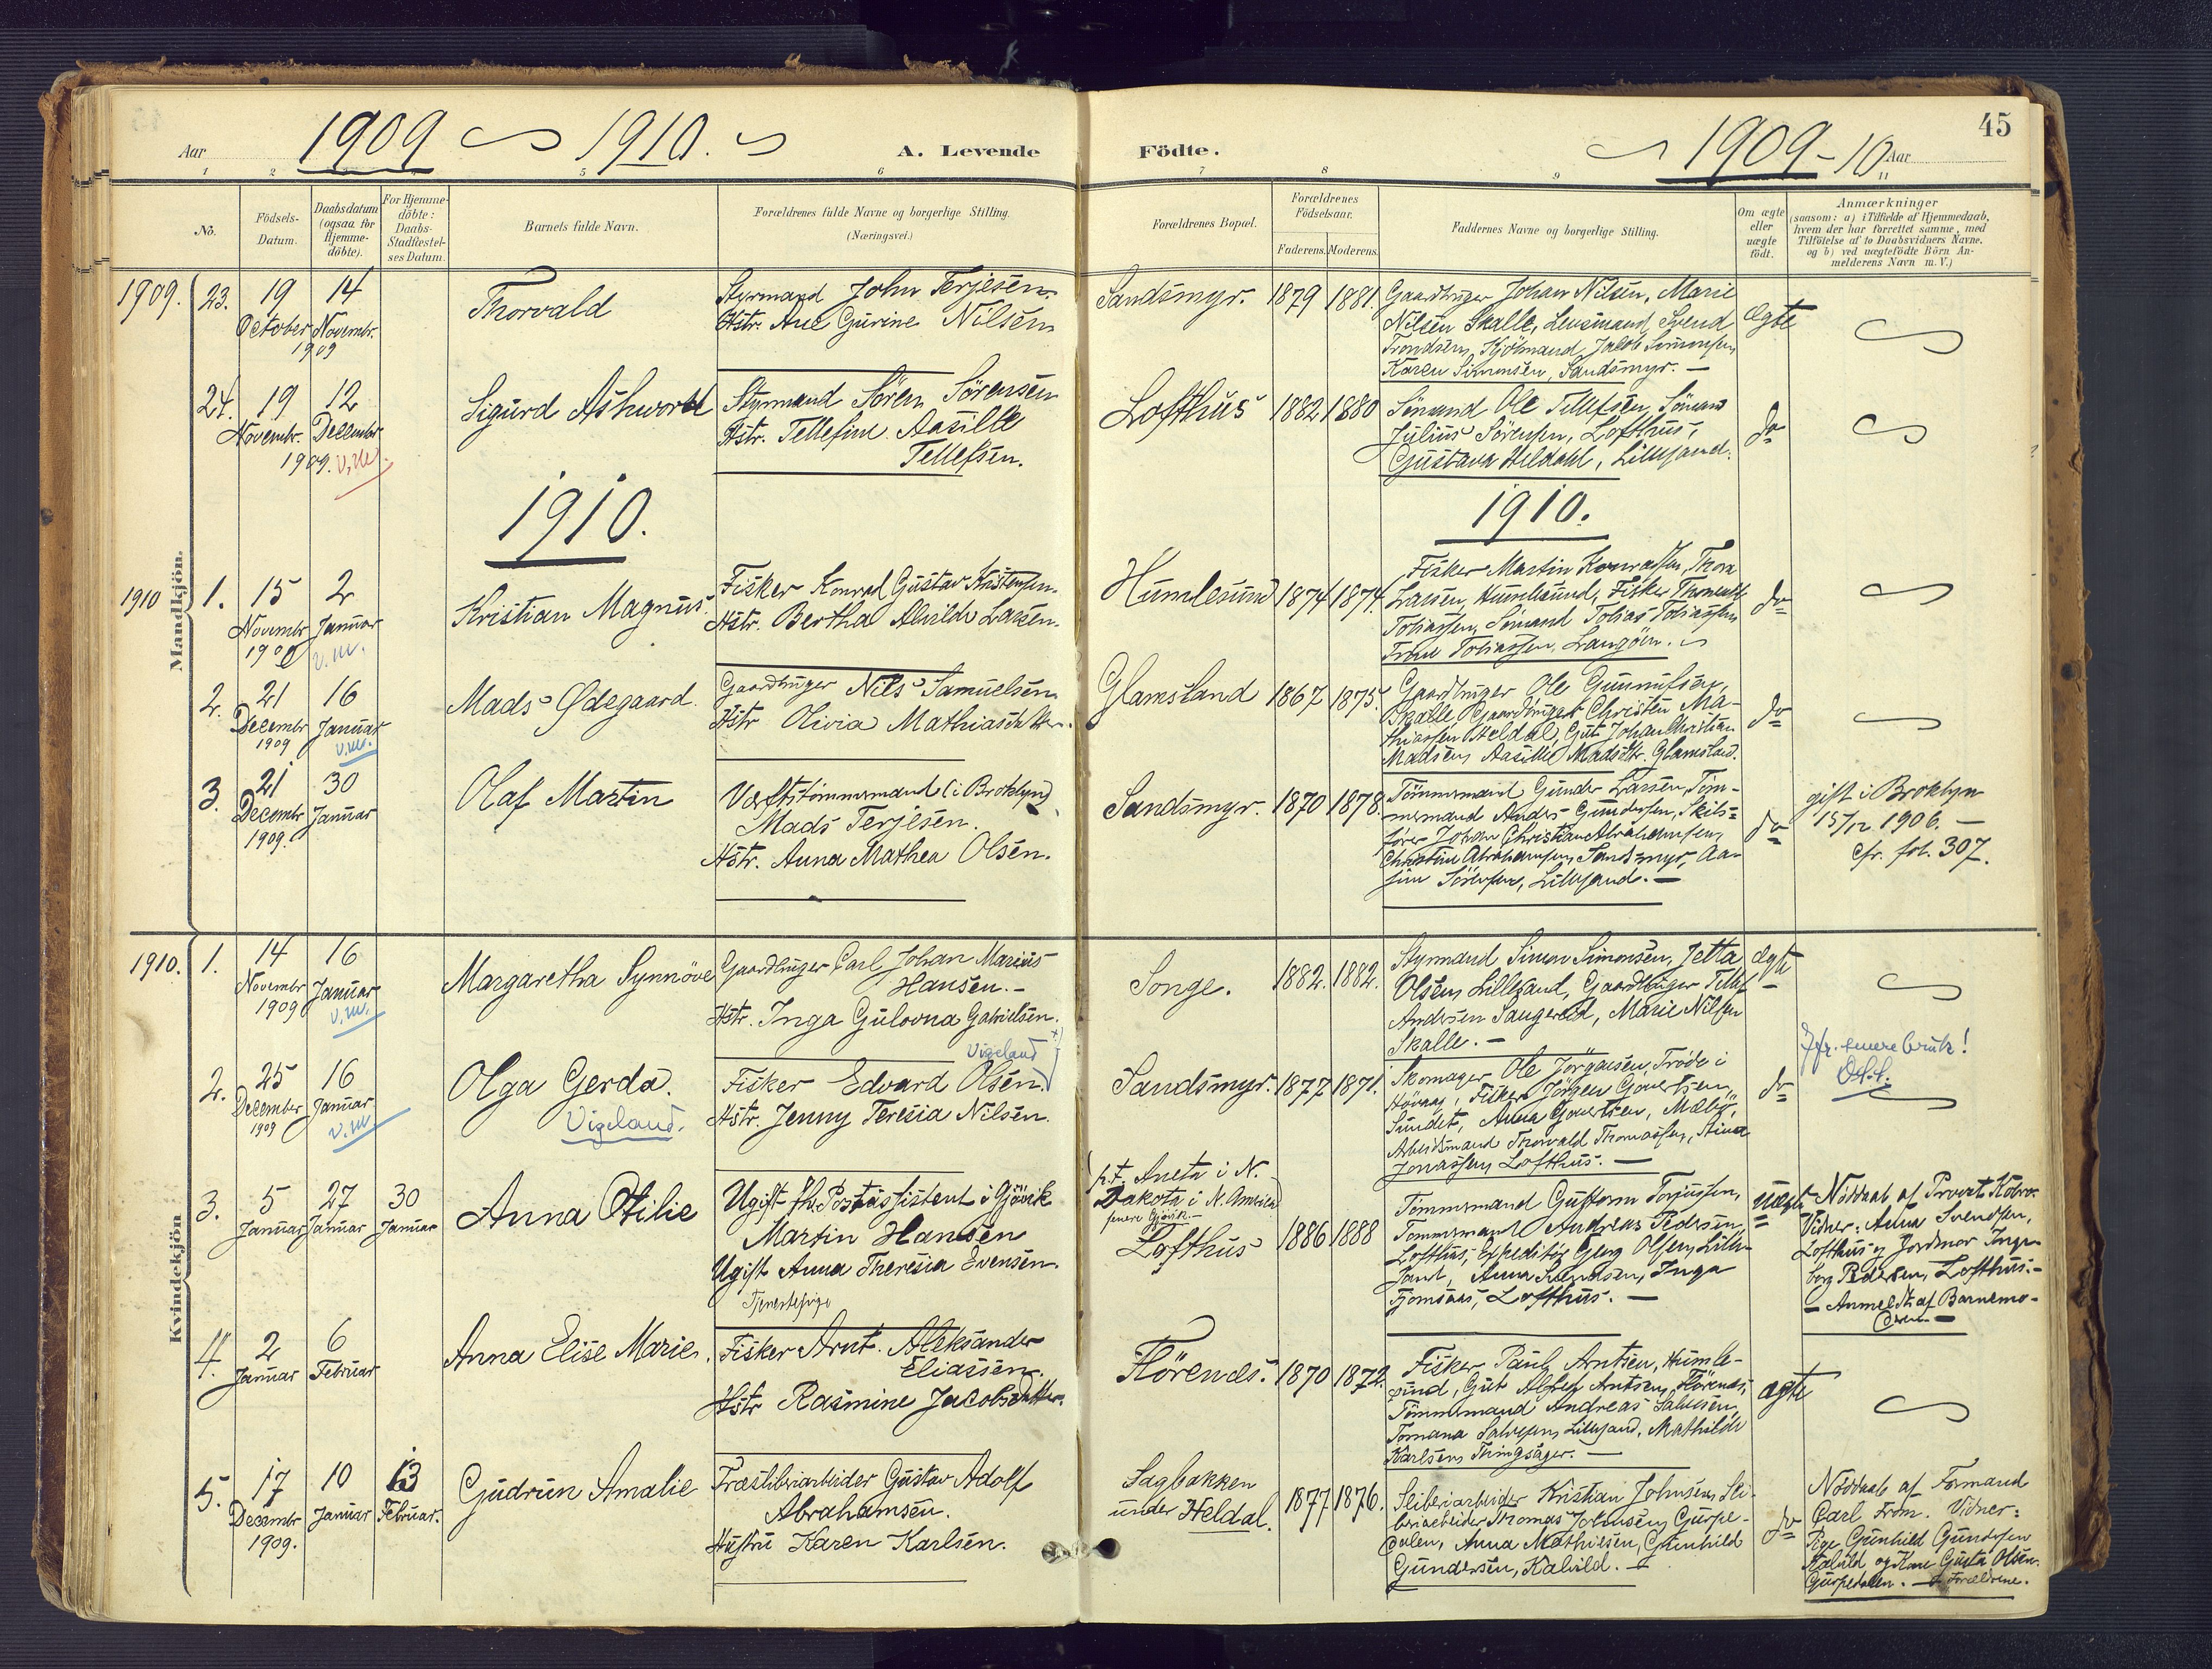 45
Aar 1909 1910. A. Levende Födte. 1909-10 Aar
1 2 5 6 7 8 9 11
No.
Födsels-
Datum.
Daabsdatum
(ogsaa for
Hjemme-
döbte).
For Hjemme-
döbte:
Daabs-
Stadfæstel-
ses Datum.
Barnets fulde Navn.
Forældrenes fulde Navne og borgerlige Stilling.
(Næringsvei.)
Forældrenes Bopæl.
Forældrenes
Födselsaar.
Faderens. Moderens.
Faddernes Navne og borgerlige Stilling.
Om ægte
eller
uægte
födt.
Anmærkninger
(saasom: a) i Tilfælde af Hjemmedaab,
hvem der har forrettet samme, med
Tilföielse af to Daabsvidners Navne.
og b) ved uægtefödte Börn An-
melderens Navn m. V.)
Mandkjön.
1909. 23.
19
October
14
Novembr.
1909
Thorvald
Styrmand John Terjesen.
Hstr. Ane Gurine Nilsen
Sandsmyr. 1879 1881.
Gaardbruger Johan Nilsen, Marie
Nilsen Skalle, Lensmand Svend
Trondsen, Jakob Simonsen,
Karen Simonsen, Sandsmyr. —
ægte
24.
19
Novembr.
12
Decembr
1909. v.m.
Sigurd Ashworth
Styrmand Sören Sörensen
Hstr. Tellefine Aasille
Tellefsen.
Lofthus 1882 1880
Sömand Ole Tellefsen, Sömand
Julius Sörensen, Lofthus,
Gustava Heldahl, Lillesand.
do
1910. 1910.
1910 1.
15
Novembr
1909
2
Januar
v.m.
Kristian Magnus.
Fisker Konrad Gustav Kristensen.
Hstr. Bertha Alvilde Larsen.
Humlesund 1874 1874.
Fisker Martin Konradsen, Thora
Larsen, Humlesund, Fisker
Tobiassen, Sömand Tobias Tobiassen
Tobiassen, Langöen.
do
2.
21
Decembr
1909
16
Januar
v.m.
Mads Ødegaard.
Gaardbruger Nils Samuelsen
Hstr Olivia Mathiasdatter.
Glamsland 1867 1875.
Gaardbruger Ole Gunnufsen,
Skalle, Gaardbruger Christen Ma-
thiassen Heldal, Gut Johan Christian
Madsen, Aasille Madsdtr. Glamsland.
do
3.
21
Decembr
1909.
30
Januar
Olaf Martin
Værftstömmermand (i Broklyn)
Mads Terjesen.
Hstr. Anna Mathea Olsen.
Sandsmyr. 1870 1878.
Tömmermand Gunder Larsen, Töm-
mermand Anders Gundersen, Skibs-
förer Johan Christian Abrahamsen,
Christine Abrahamsen, Sandsmyr, Aa-
sine Sörensen, Lillesand. —
do
gift i Broklyn
15/12 1906. —
cfr. fol. 307.
Kvindekjön
1910. 1.
14
Novembr
1909
16
Januar
v.m.
Margaretha Synnöve
Gaardbruger Carl Johan Marius
Hansen. -
Hstr. Inga Gulovna Gabrielsen.
Songe. 1882. 1882.
Styrmand Simon Simonsen, Jetta
Olsen, Lillesand, Gaardbruger Tellef
Andersen Saugerud, Marie Nilsen
Skalle. —
ægte
2.
25
December
1909
16
Januar
v.m.
Olga Gerda.
Vigeland.
Vigeland +)
Fisker Edvard Olsen.
Hstr. Jenny Teresia Nilsen.
Sandsmyr. 1877 1871.
Skomager Ole Jörgensen, Tröde i
Hövaag, Fisker Jörgen Govertsen,
Sundet, Anna Govertsen, Mæbö,
Arbeidsmand Thorvald Thomassen, Stina
Jonassen, Lofthus. —
do
Jfr. senere bruk!
3.
5
Januar
27
Januar
30
Januar
Anna Otilie
Ugift fhv. Postassistent i Gjövik
Martin Hansen
Ugift Anna Theresia Evensen.
Tjenestepige
(p.t. Aneta i N.
Dakota i N. Amerika
senere Gjövik. —
Lofthus 1886 1888
Tömmermand Guttorm Torjussen,
Tömmermand Andreas Pedersen
Lofthus, Expeditör Georg Olsen, Lille-
sand, Anna Svendsen, Inga
Fjomsaas, Lofthus. —
uægte
Nöddaab af Provst
Vidner: Anna Svendsen,
Lofthus og Jordmor Inge-
borg Pedersen, Lofthus. -
— Anmeldt af Barnemo-
deren. —
4.
2
Januar
6
Februar
Anna Elise Marie.
Fisker Arnt Aleksander
Eliassen.
Hstr Rasmine Jacobsdatter.
Flörenæs. 1870 1872.
Fisker Paul Arntsen, Humle-
sund, Gut Alfred Arntsen, Flörenæs,
Tömmermand Andreas Salvesen,
Tomana Salvesen, Lillesand, Mathilde
Karlsen, Thingsager. —
ægte
5.
17
Decembr
1909.
10
Januar
13
Februar.
Gudrun Amalie
Træsliberiarbeider Gustav Adolf
Abrahamsen.
Hustru Karen Karlsen.
Sagbakken
under Heldal. 1877 1876.
Sliberiarbeider Kristian Johnsen, Sli-
beriarbeider Thomas Johnsen, Gurpe-
dalen, Anna Mathisen, Gunhild
Gundersen, Kalvild. —
do
Nöddaab af Formand
Carl From. Vidner:
Pige Gunhild Gundersen
Kalvild og Kone Gusta Olsen.
Gurpedalen. — Forældrene.